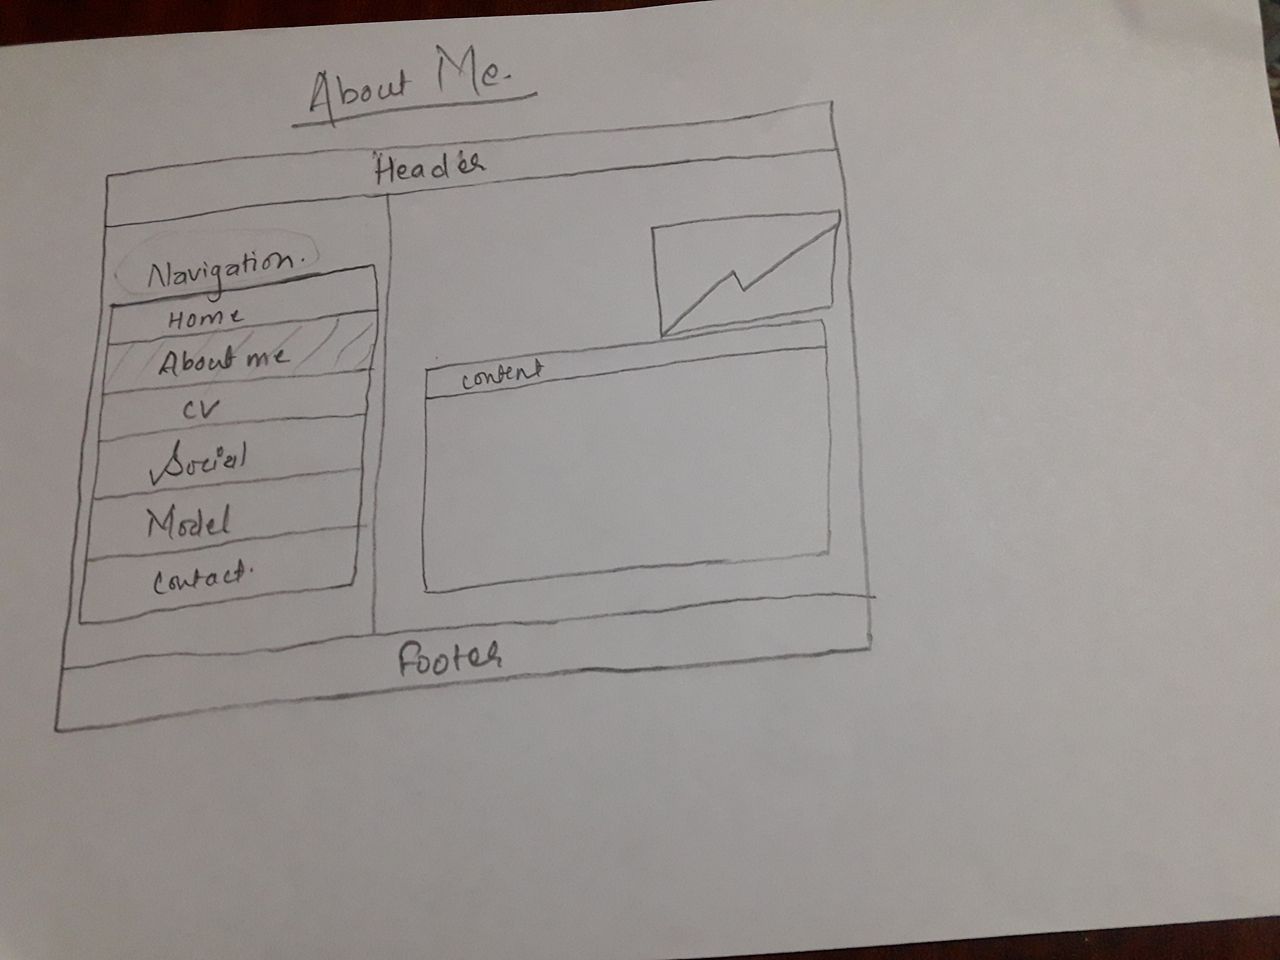 About Me.
Header
Navigation.
Home
About me
CV
Social
Model
Contact.
content
Footer